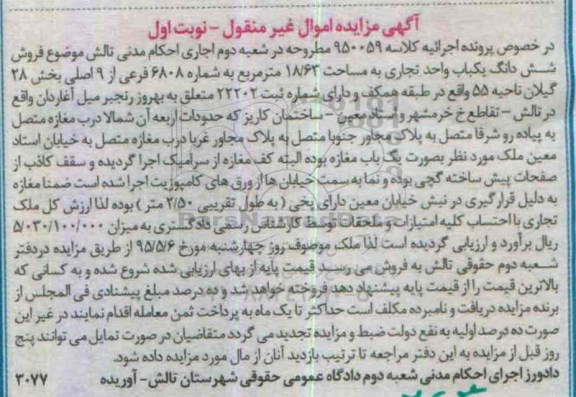 آگهی مزایده اموال غیر منقول - نوبت اول
در خصوص پرونده اجرائیه کلاسه ۹۵۰۰۵۹ مطروحه در شعبه دوم اجاری احکام مدنی تالش موضوع فروش
شش دانگ یکباب واحد تجاری به مساحت ۱۸/۶۳ مترمربع به شماره ۶۸۰۸ فرعی از ۹ اصلی بخش ۲۸
گیلان ناحیه ۵۵ واقع در طبقه همکف و دارای شماره ثبت ۲۲۲۰۲ متعلق به بهروز رنجبر میل آغاردان واقع
در تالش - تقاطع خ خرمشهر و استاد معین - ساختمان کاریز که حدودات اربعه آن شمالا درب مغازه متصل
به پیاده رو شرقا متصل به پلاک مجاور جنوبا متصل به پلاک مجاور غربا درب مغازه متصل به خیابان استاد
معین ملک مورد نظر بصورت یک باب مغازه بوده البته کف مغازه از سرامیک اجرا گردیده و سقف کاذب از
صفحات پیش ساخته گچی بوده و نما به سمت خیابان ها از ورق های کامپوزیت اجرا شده است ضمنا مغازه
به دلیل قرارگیری در نبش خیابان معین دارای پخی (به طول تقریبی ۲/۵۰ متر) بوده لذا ارزش کل ملک
تجاری با احتساب کلیه امتیازات و ملحقات توسط کارشناس رسمی دادگستری به میزان ۵/۰۳۰/۱۰۰/۰۰۰
ریال برآورد و ارزیابی گردیده است لذا ملک موصوف روز چهارشنبه مورخ ۹۵/۵/۶ از طریق مزایده دردفتر
شعبه دوم حقوقی تالش به فروش می رسد قیمت پایه از بهای ارزیابی شده شروع شده و به کسانی که
بالاترین قیمت را از قیمت پایه پیشنهاد دهد فروخته خواهد شد و ده درصد مبلغ پیشنادی فی المجلس از
برنده مزایده دریافت و نامبرده مکلف است حداکثر تا یک ماه به پرداخت ثمن معامله اقدام نمایند در غیر این
صورت ده درصد اولیه به نفع دولت ضبط و مزایده تجدید می گردد متقاضیان در صورت تمایل می توانند پنج
روز قبل از مزایده به این دفتر مراجعه تا ترتیب بازدید آنان از مال مورد مزایده داده شود.
دادورز اجرای احکام مدنی شعبه دوم دادگاه عمومی حقوقی شهرستان تالش- آوریده ۳۰۷۷